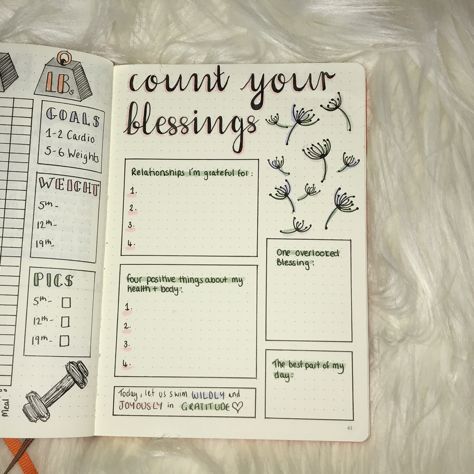 LBs
GOALS
1-2 Cardio
5-6 Weights
WEIGHT
5th-
12th-
19th-
PICS
5th-
12th-
19th-
Meal
count your
blessings
Relationships I'm grateful for:
1.
2.
3.
4.
Four positive things about my
health + body:
1.
2.
3.
4.
One overlooked
Blessing:
The best part of my
day:
Today, let us swim WILDLY and
JOYOUSLY in GRATITUDE♡